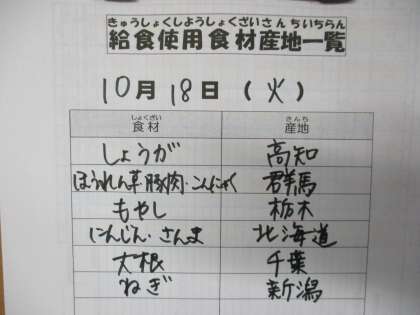 きゅうしょくしようしょくざいさんちいちらん
給食使用食材産地一覧
10月 18日 (火)
しょくざい さんち
食材 産地
しょうが 高知
ほうれん草・豚肉・こんにゃく 群馬
もやし 栃木
にんじん・さんま 北海道
大根 千葉
ねぎ 新潟